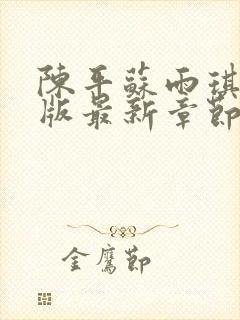 陳平蘇雨琪
版最新章節
金鷹節